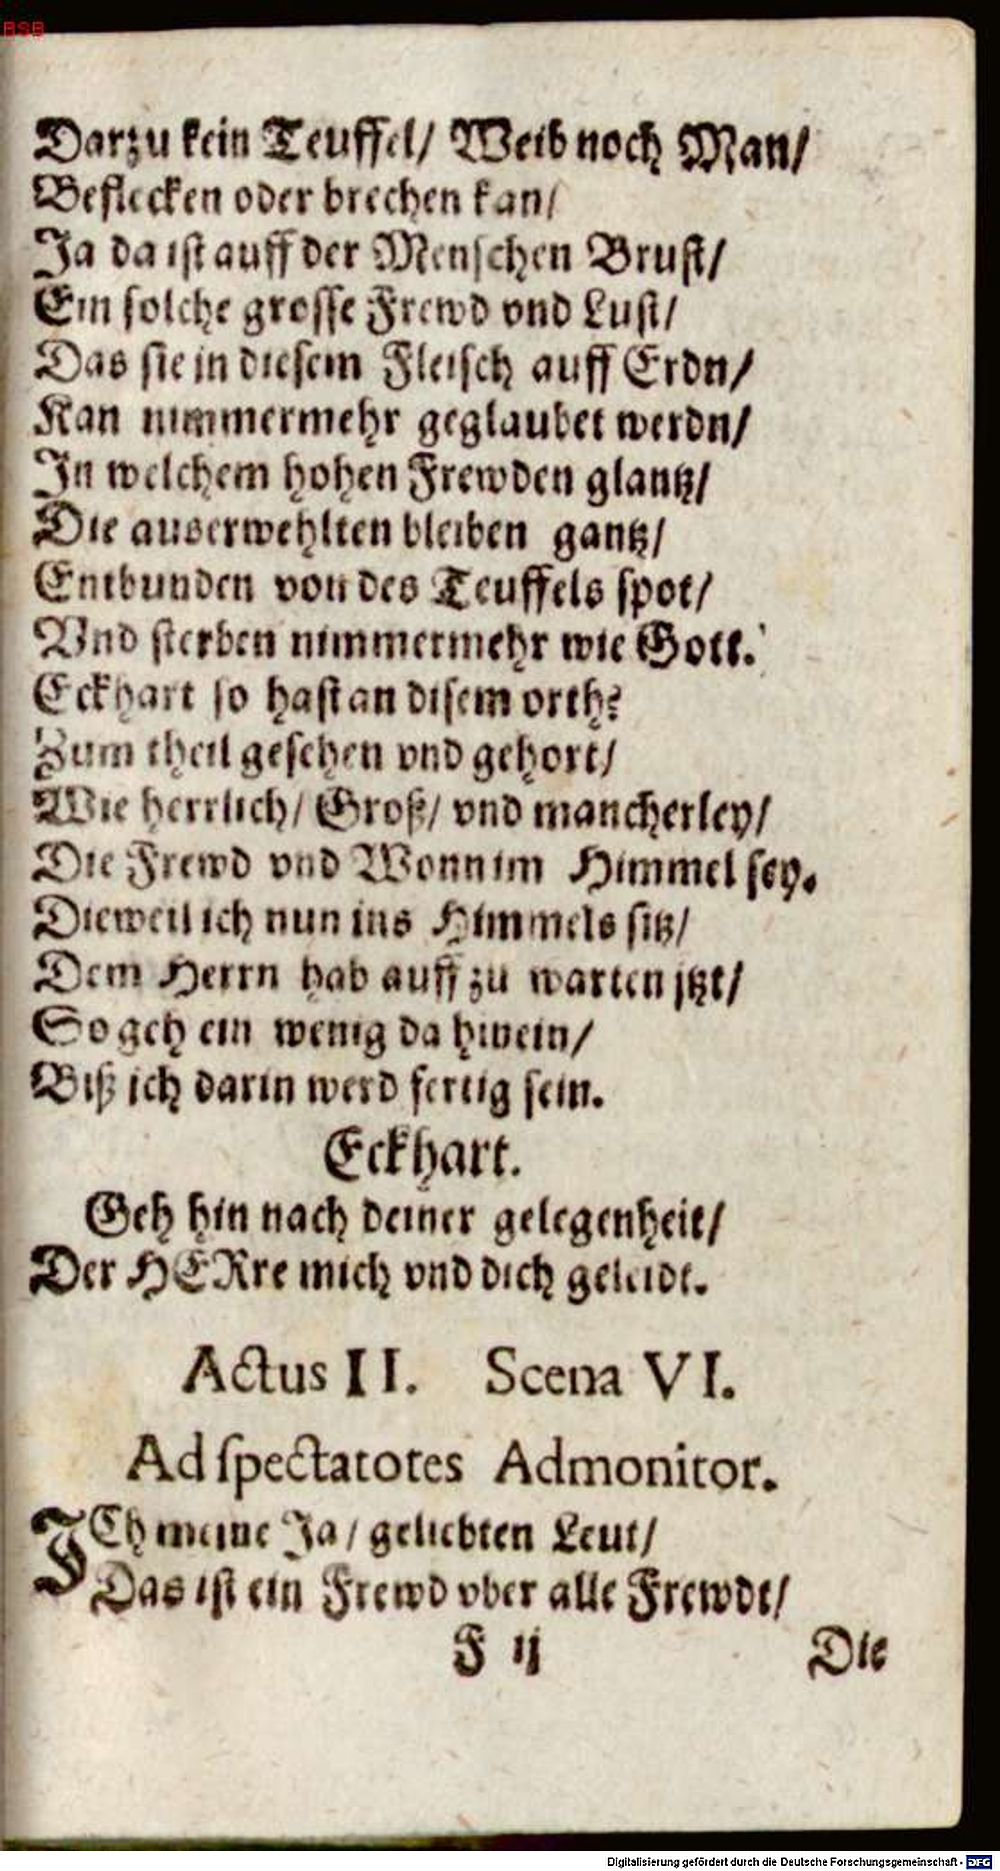 BSB
Darzu kein Teuffel/ Weib noch Man/
Beflecken oder brechen kan/
Ja da ist auff der Menschen Brust/
Ein solche grosse Frewd vnd Lust/
Das sie in diesem Fleisch auff Erdn/
Kan nimmermehr geglaubet werdn/
In welchem hohen Frewden glantz/
Die auserwehlten bleiben gantz/
Entbunden von des Teuffels spot/
Vnd sterben nimmermehr wie Gott.
Eckhart so hast an disem orth?
Zum theil gesehen vnd gehort/
Wie herrlich/ Groß/ vnd mancherley/
Die Frewd vnd Wonn im Himmel sey.
Dieweil ich nun ins Himmels sitz/
Dem Herrn hab auff zu warten jtzt/
So geh ein wenig da hinein/
Biß ich darin werd fertig sein.
Eckhart.
Geh hin nach deiner gelegenheit/
Der HERre mich vnd dich geleidt.
Actus II. Scena VI.
Ad spectatotes Admonitor.
ICh meine Ja/ geliebten Leut/
Das ist ein Frewd vber alle Frewdt/
F ij Die
Digitalisierung gefördert durch die Deutsche Forschungsgemeinschaft - DFG